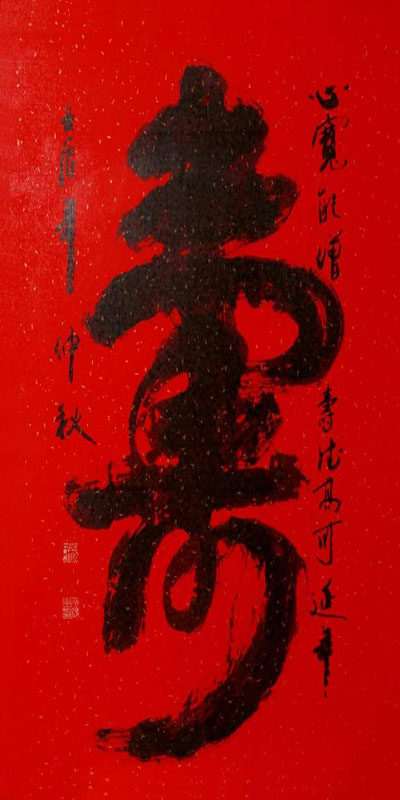 心寬能增壽德高可延年
壽
年仲秋